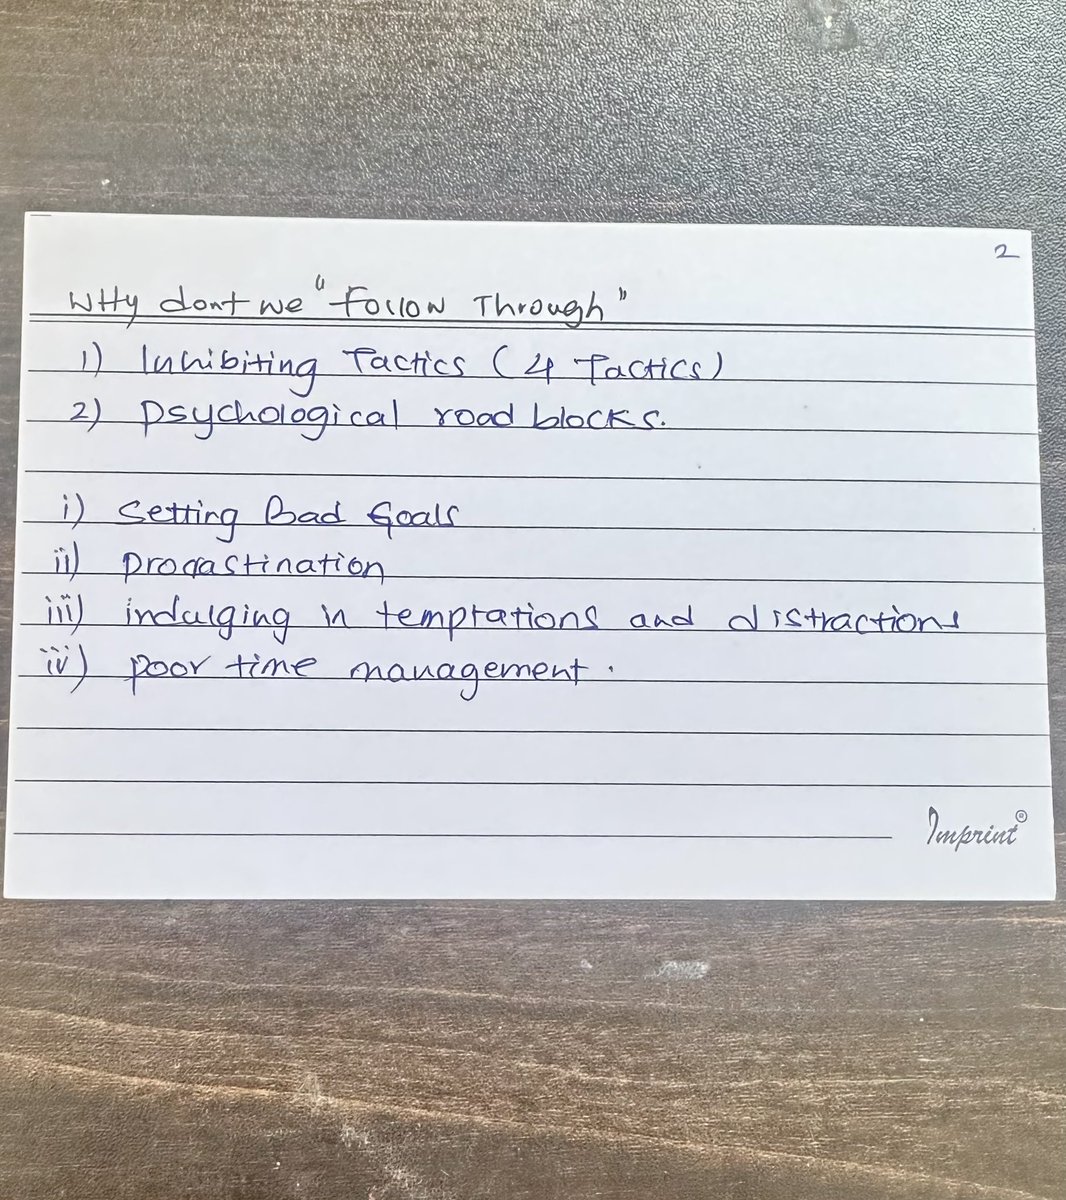 2
Why dont we "Follow Through"
1) Inhibiting Tactics (4 Tactics)
2) Psychological road blocks.
i) Setting Bad Goals
ii) Procastination
iii) indulging in temptations and distractions
iv) poor time management.
Imprint®